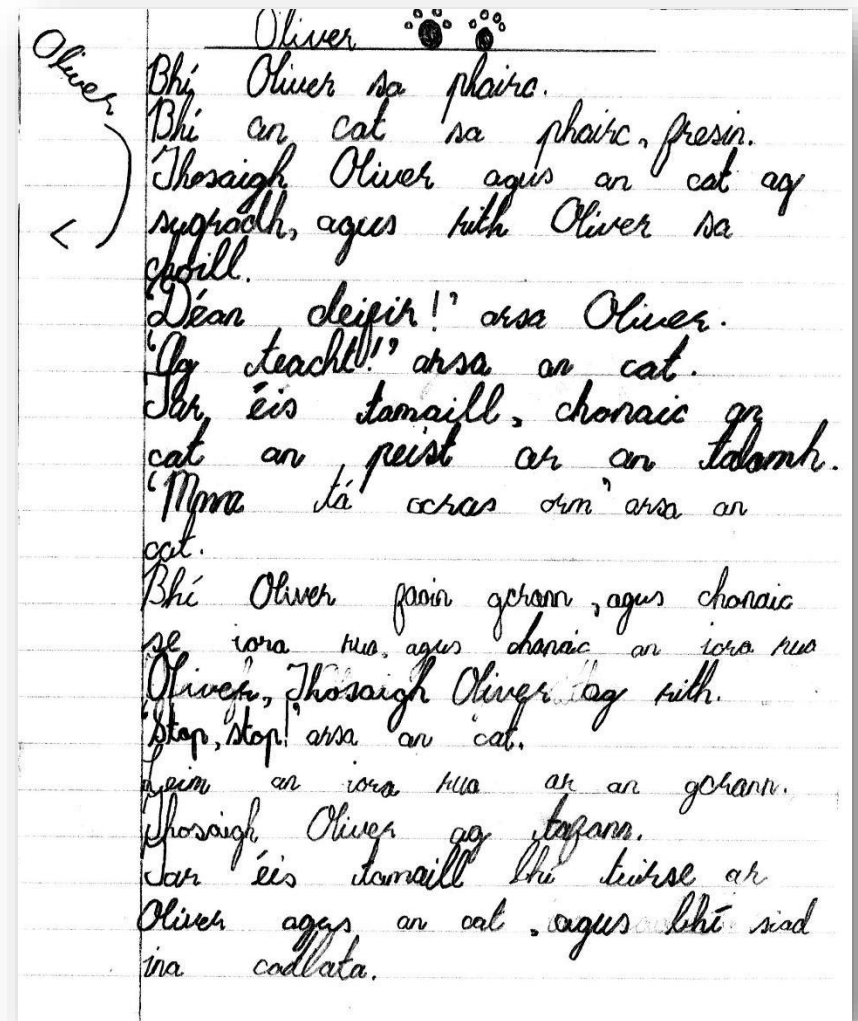 Oliver
Oliver
Bhí Oliver sa phairc.
Bhí an cat sa phairc, fresin.
Thosaigh Oliver agus an cat ag
sugradh, agus rith Oliver sa
choill.
'Déan deifir!' arsa Oliver.
'Ag teacht!' arsa an cat.
Tar éis tamaill, chonaic an
cat an peist ar an talamh.
'Mmm tá ocras orm' arsa an
cat.
Bhí Oliver faoin gcrann, agus chonaic
se iora rua, agus chonaic an iora rua
Oliver, Thosaigh Oliver ag rith.
'Stop, stop!' arsa an cat.
Leim an iora rua ar an gcrann.
Thosaigh Oliver ag tafann.
Tar éis tamaill bhí tuirse ar
Oliver agus an cat, agus bhí siad
ina codlata.